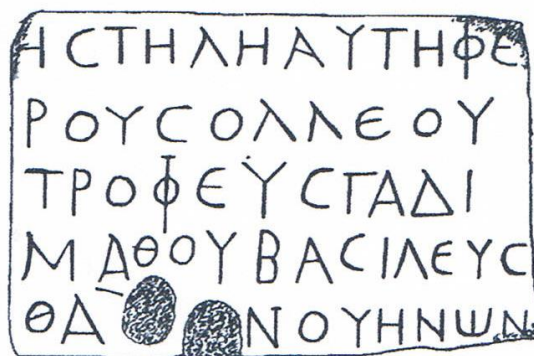 ΗϹΤΗΛΗΑΥΤΗΦΕ
ΡΟΥϹΟΛΛΕΟΥ
ΤΡΟΦΕΥϹΓΑΔΙ
ΜΑΘΟΥΒΑϹΙΛΕΥϹ
ΘΑ ΝΟΥΗΝΩΝ